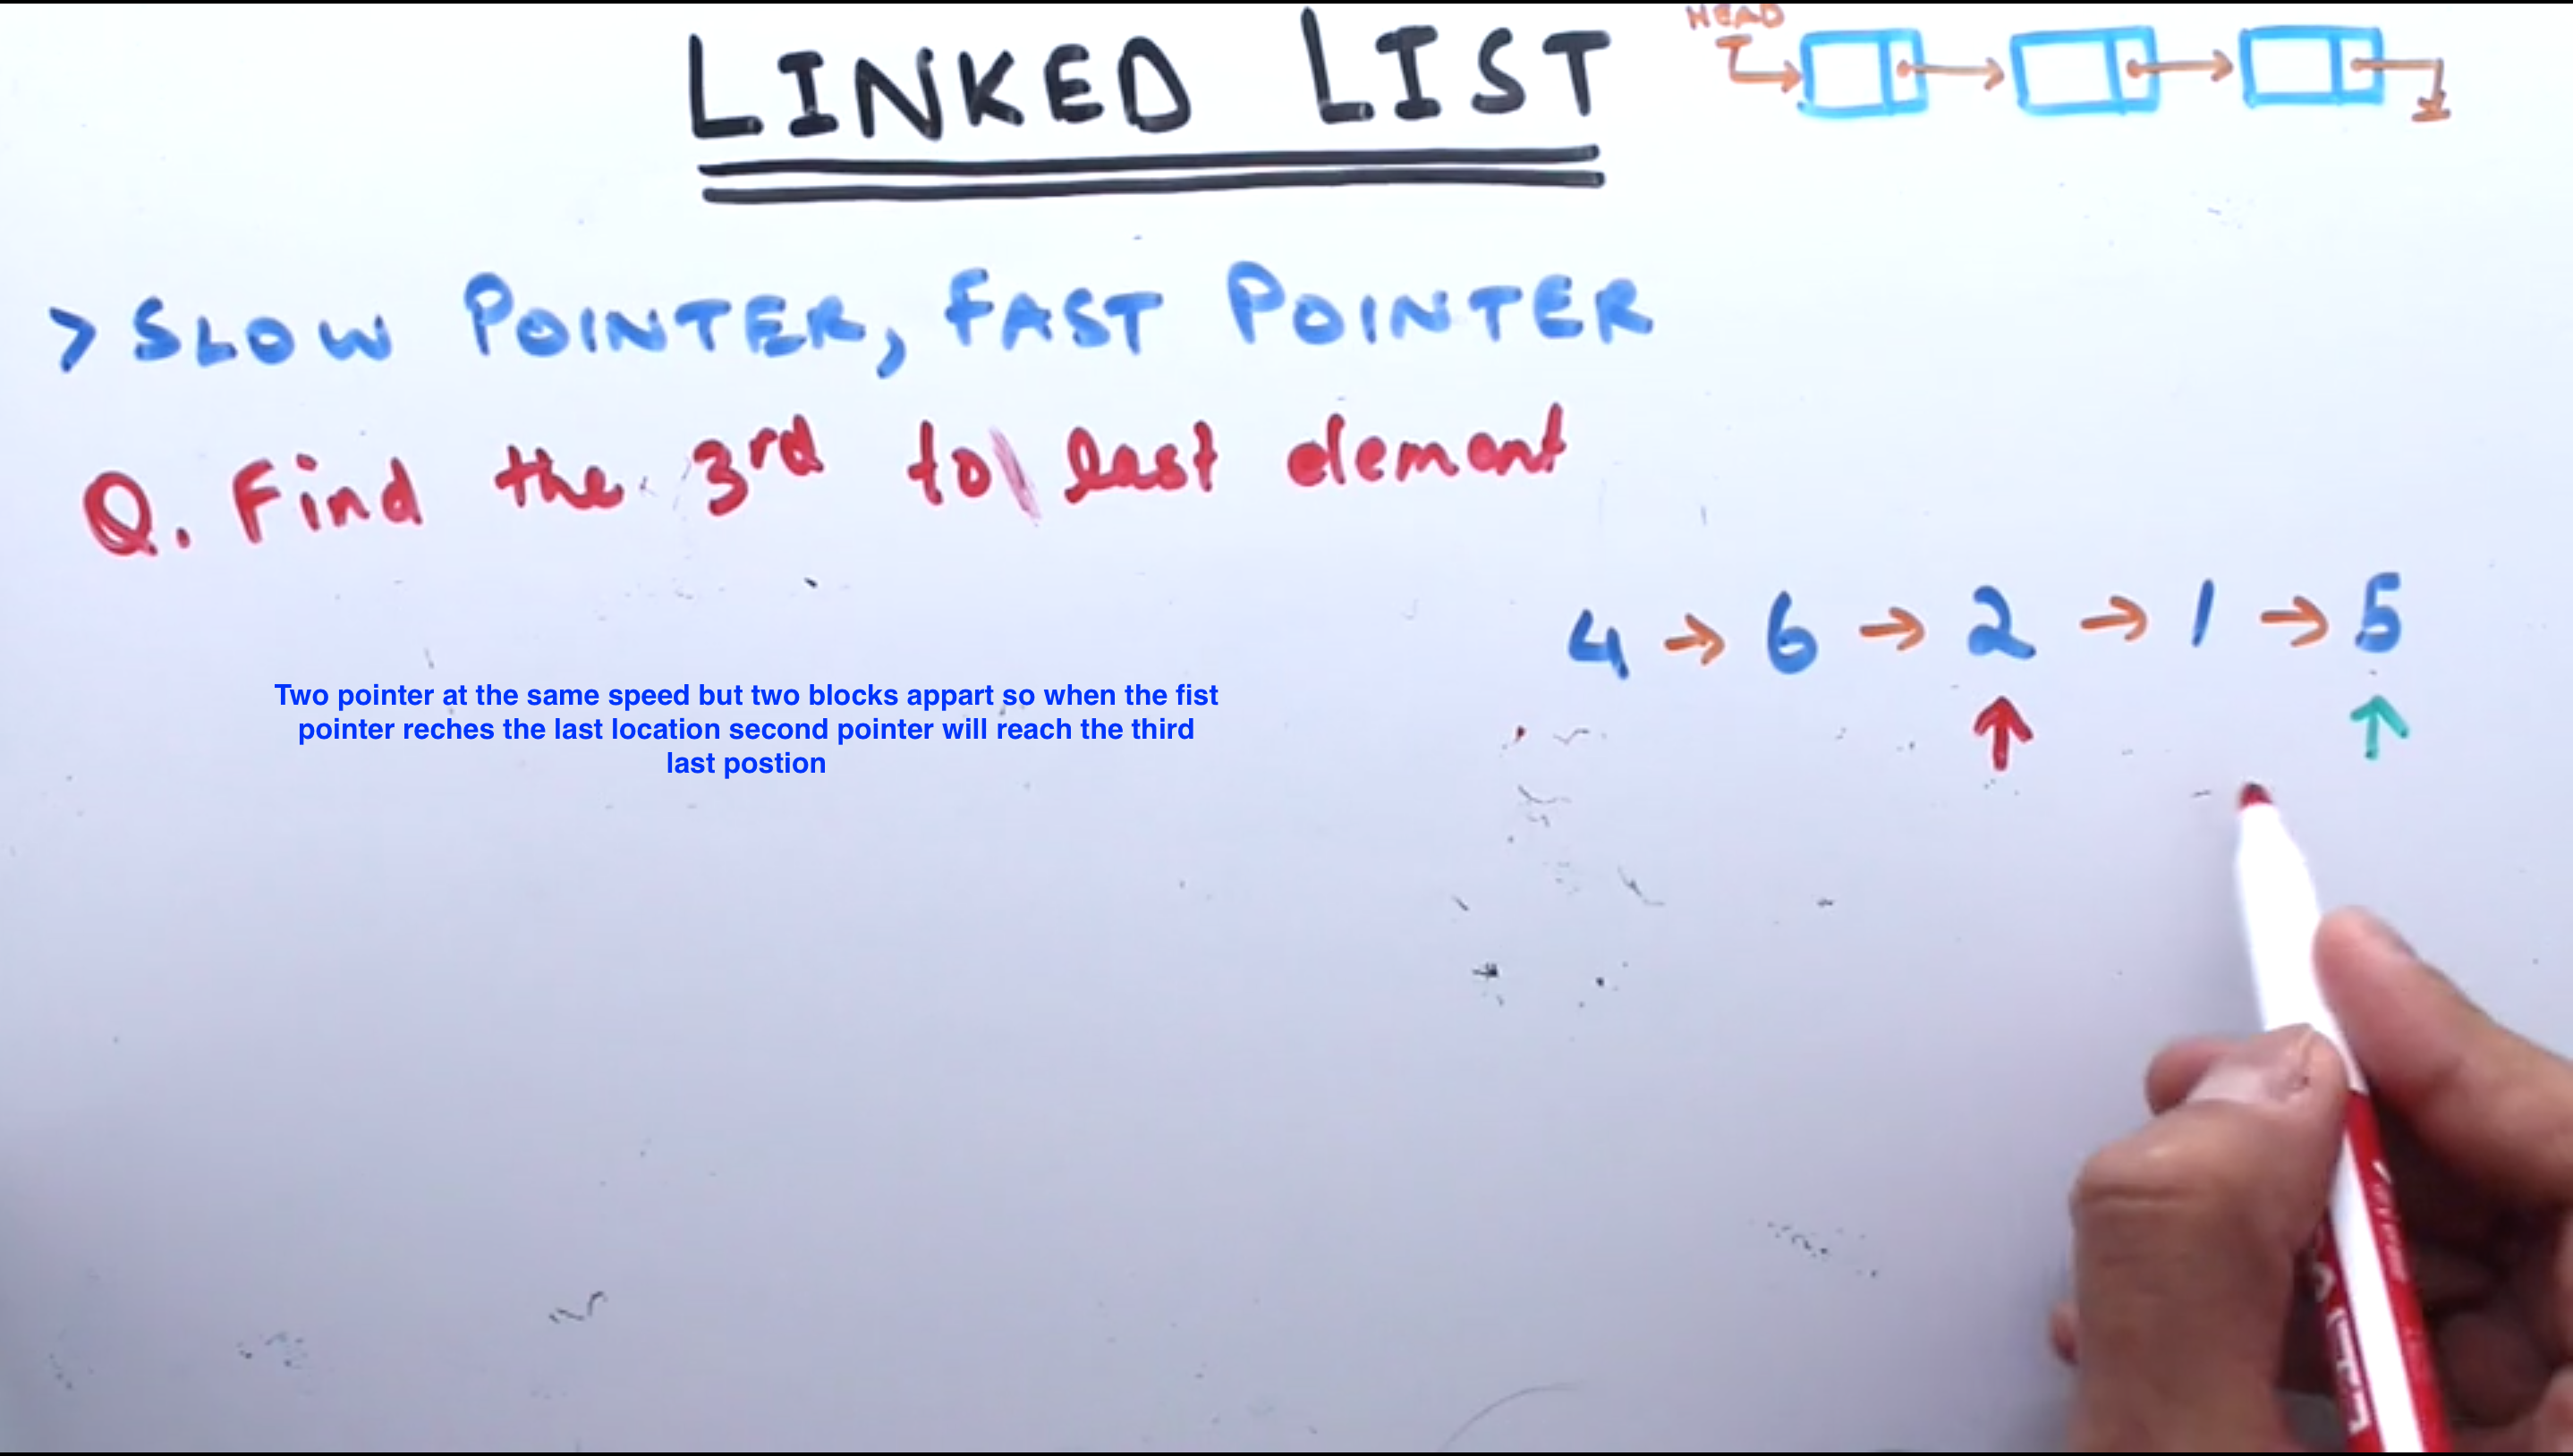 LINKED LIST
HEAD
> SLOW POINTER, FAST POINTER
Q. Find the 3rd to last element
4 → 6 → 2 → 1 → 5
Two pointer at the same speed but two blocks appart so when the fist
pointer reches the last location second pointer will reach the third
last postion